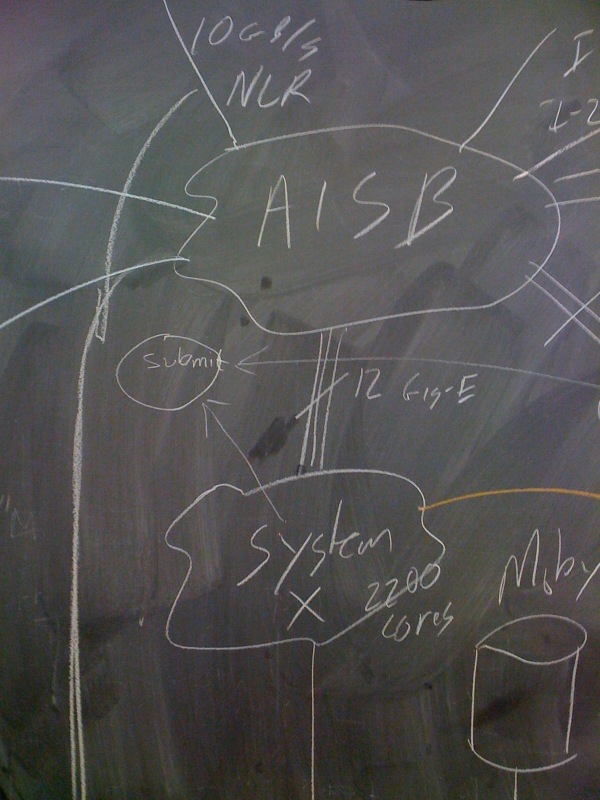 10GB/s
NLR
I
I-2
AISB
submit
12 Gig-E
System
X
2200
cores
Moby